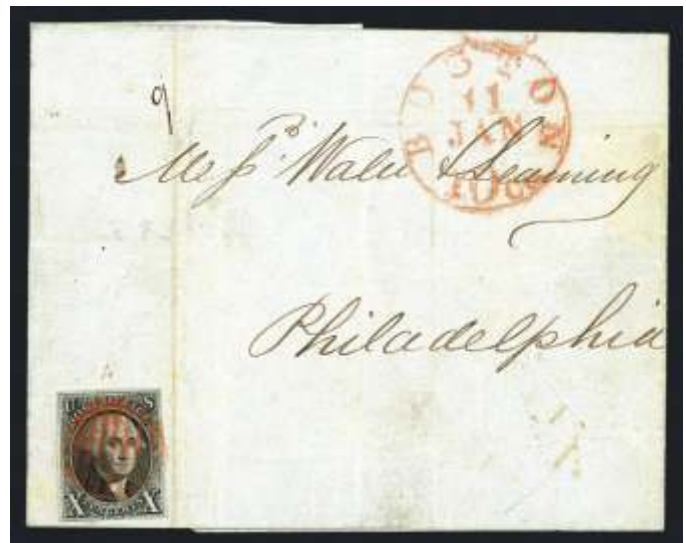 BOSTON
11
JAN
10cts
9
Messrs. Waln & Leaming
Philadelphia
U S
POST OFFICE
X X